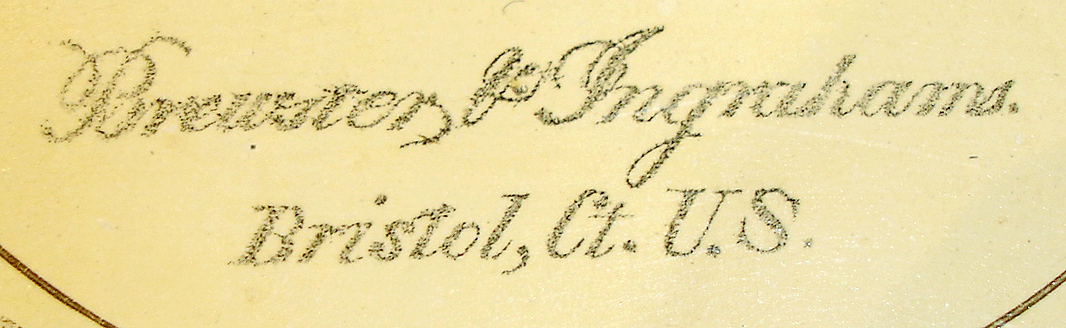 Brewster & Ingrahams.
Bristol, Ct. U.S.